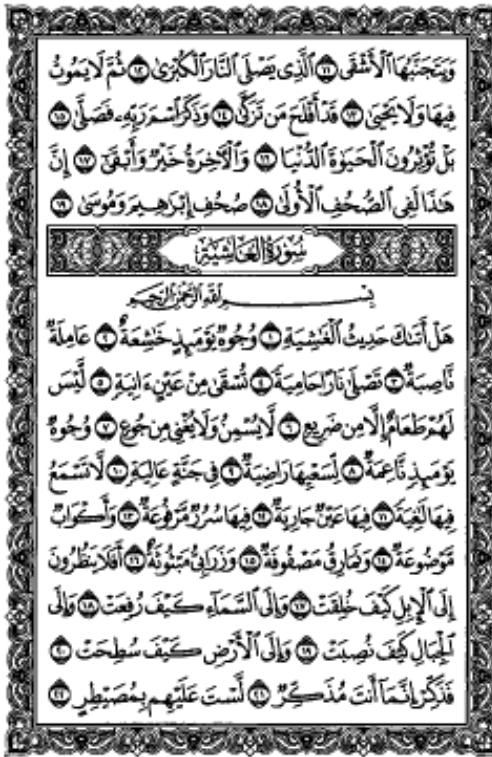 وَيَتَجَنَّبُهَا ٱلْأَشْقَى ١١ ٱلَّذِى يَصْلَى ٱلنَّارَ ٱلْكُبْرَىٰ ١٢ ثُمَّ لَا يَمُوتُ
فِيهَا وَلَا يَحْيَىٰ ١٣ قَدْ أَفْلَحَ مَن تَزَكَّىٰ ١٤ وَذَكَرَ ٱسْمَ رَبِّهِۦ فَصَلَّىٰ ١٥
بَلْ تُؤْثِرُونَ ٱلْحَيَوٰةَ ٱلدُّنْيَا ١٦ وَٱلْـَٔاخِرَةُ خَيْرٌ وَأَبْقَىٰٓ ١٧ إِنَّ
هَٰذَا لَفِى ٱلصُّحُفِ ٱلْأُولَىٰ ١٨ صُحُفِ إِبْرَٰهِيمَ وَمُوسَىٰ ١٩
سُورَةُ الغَاشِيَةِ
بِسْمِ ٱللَّهِ ٱلرَّحْمَٰنِ ٱلرَّحِيمِ
هَلْ أَتَىٰكَ حَدِيثُ ٱلْغَٰشِيَةِ ١ وُجُوهٌ يَوْمَئِذٍ خَٰشِعَةٌ ٢ عَامِلَةٌ
نَّاصِبَةٌ ٣ تَصْلَىٰ نَارًا حَامِيَةً ٤ تُسْقَىٰ مِنْ عَيْنٍ ءَانِيَةٍ ٥ لَّيْسَ
لَهُمْ طَعَامٌ إِلَّا مِن ضَرِيعٍ ٦ لَّا يُسْمِنُ وَلَا يُغْنِى مِن جُوعٍ ٧ وُجُوهٌ
يَوْمَئِذٍ نَّاعِمَةٌ ٨ لِّسَعْيِهَا رَاضِيَةٌ ٩ فِى جَنَّةٍ عَالِيَةٍ ١٠ لَّا تَسْمَعُ
فِيهَا لَٰغِيَةً ١١ فِيهَا عَيْنٌ جَارِيَةٌ ١٢ فِيهَا سُرُرٌ مَّرْفُوعَةٌ ١٣ وَأَكْوَابٌ
مَّوْضُوعَةٌ ١٤ وَنَمَارِقُ مَصْفُوفَةٌ ١٥ وَزَرَابِىُّ مَبْثُوثَةٌ ١٦ أَفَلَا يَنظُرُونَ
إِلَى ٱلْإِبِلِ كَيْفَ خُلِقَتْ ١٧ وَإِلَى ٱلسَّمَآءِ كَيْفَ رُفِعَتْ ١٨ وَإِلَى
ٱلْجِبَالِ كَيْفَ نُصِبَتْ ١٩ وَإِلَى ٱلْأَرْضِ كَيْفَ سُطِحَتْ ٢٠
فَذَكِّرْ إِنَّمَآ أَنتَ مُذَكِّرٌ ٢١ لَّسْتَ عَلَيْهِم بِمُصَيْطِرٍ ٢٢